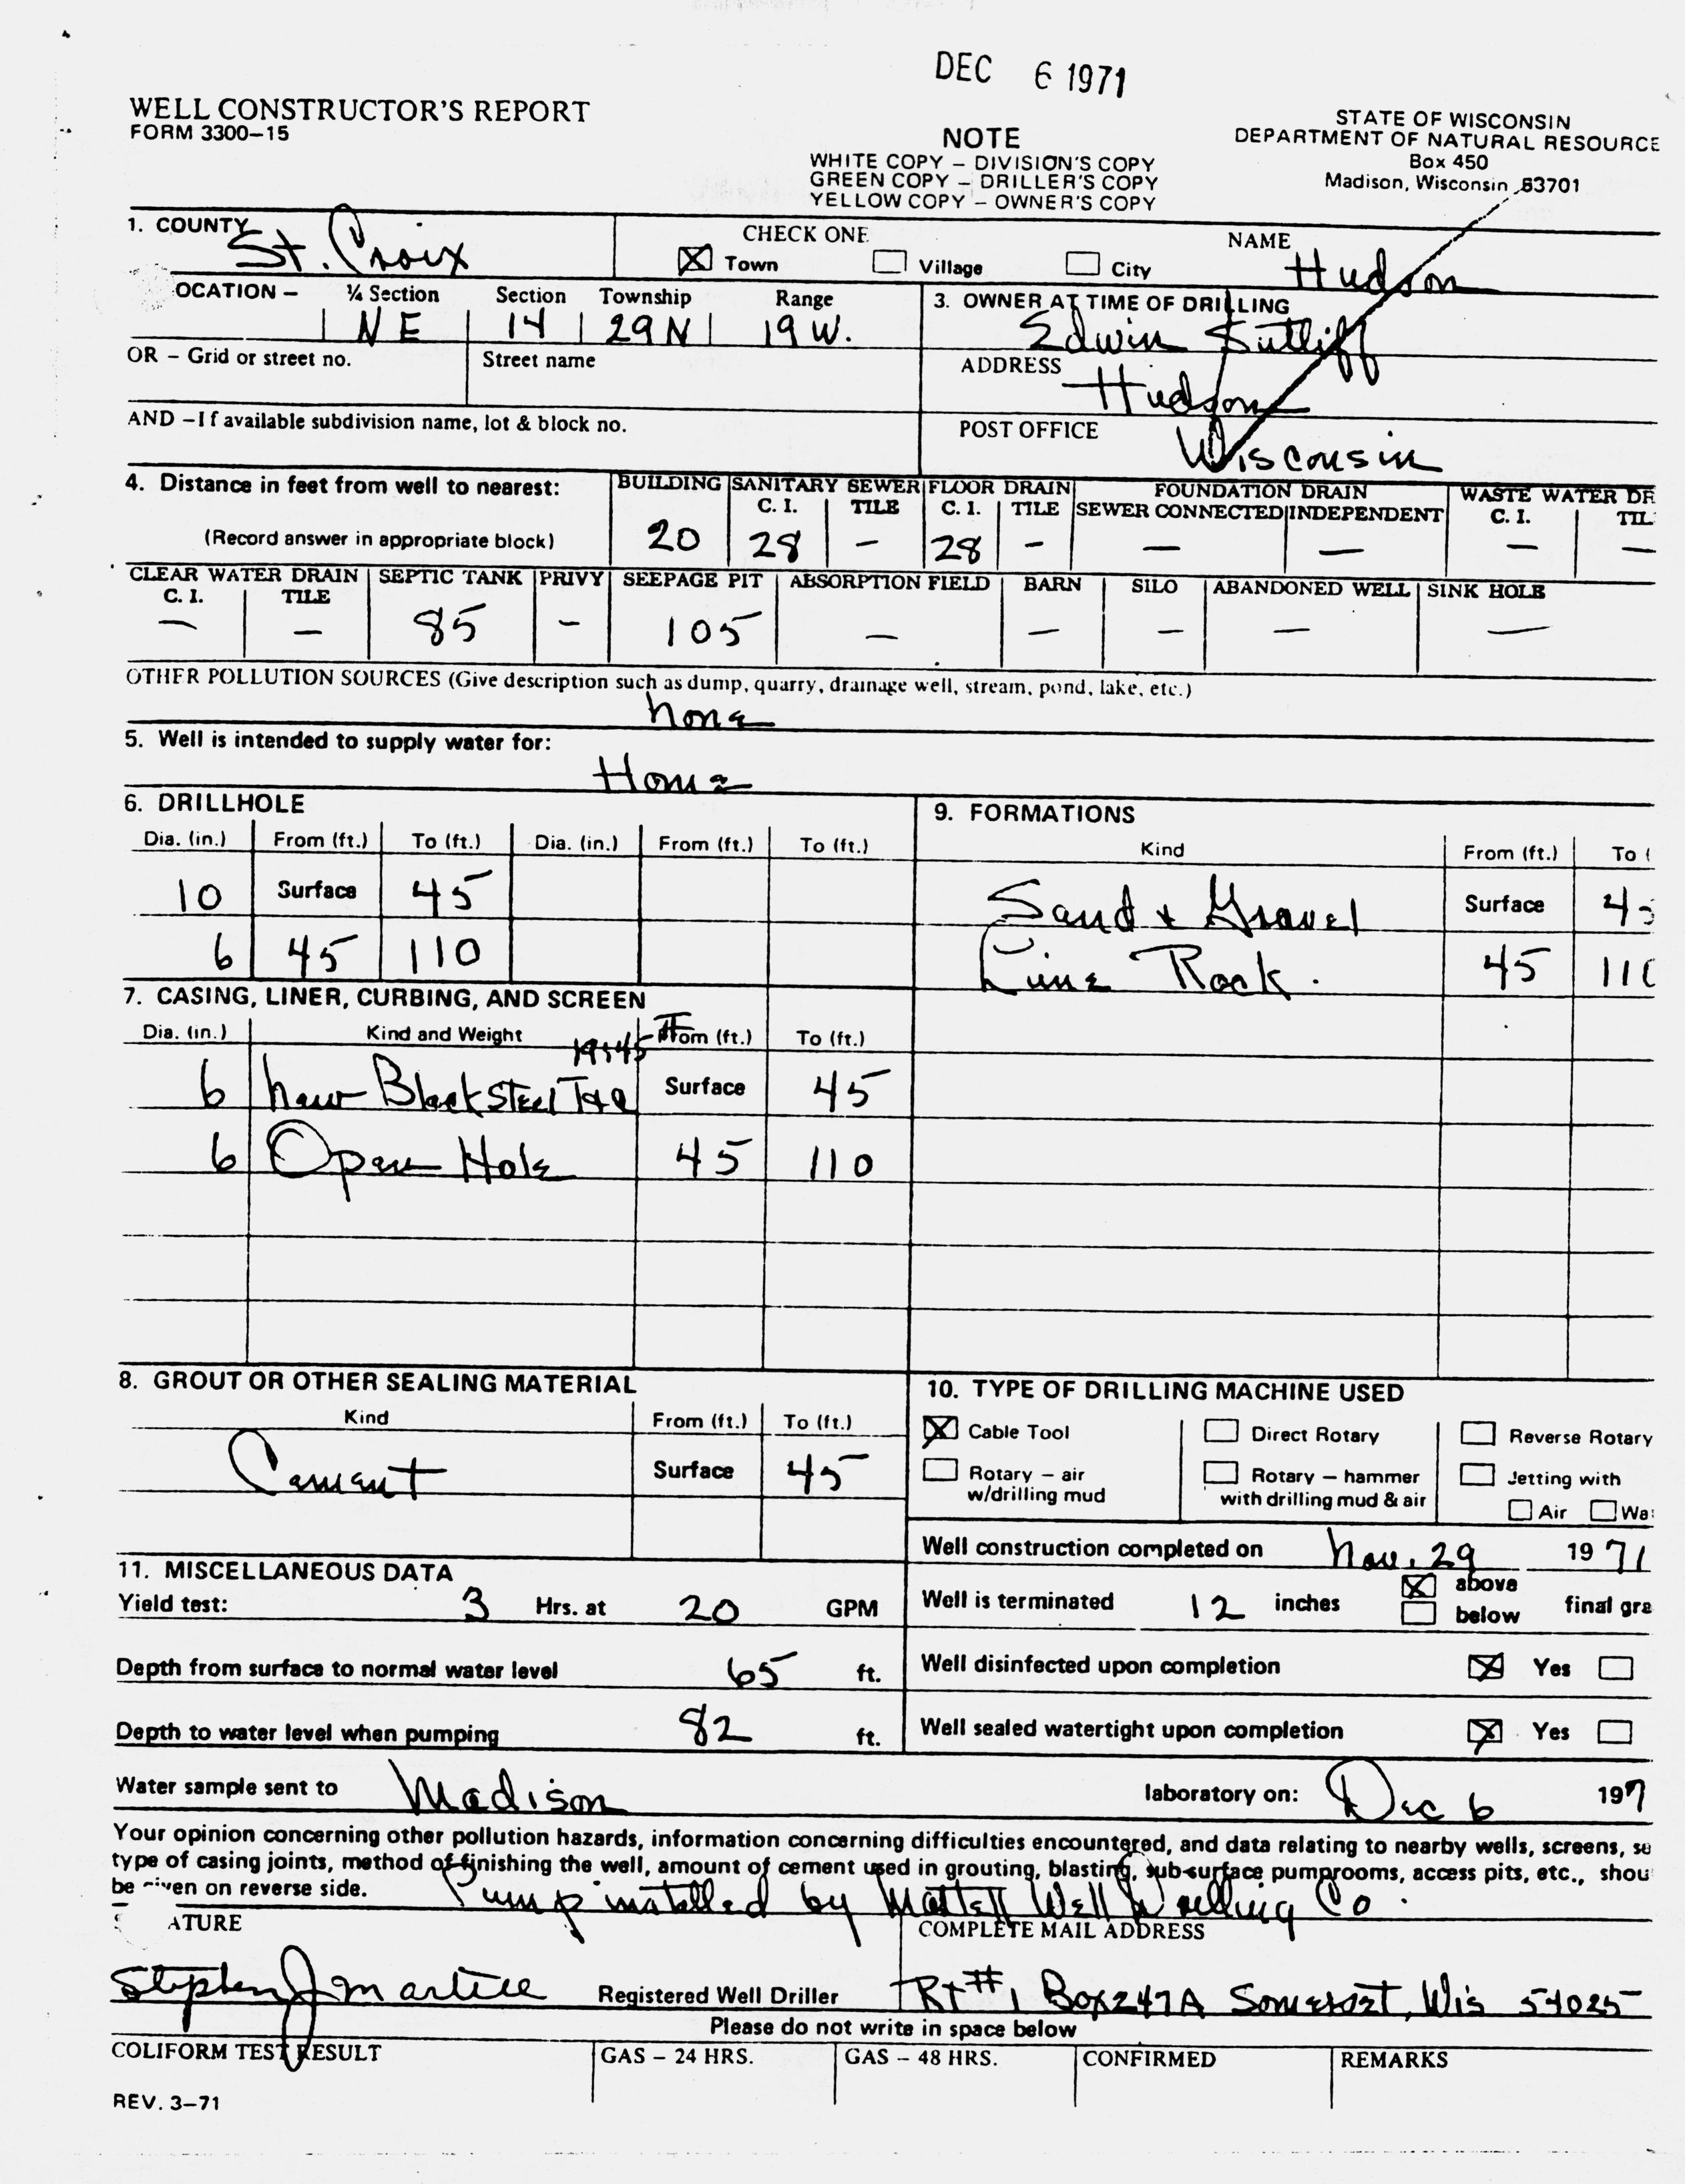 DEC 6 1971
WELL CONSTRUCTOR'S REPORT
FORM 3300-15
NOTE
WHITE COPY – DIVISION'S COPY
GREEN COPY – DRILLER'S COPY
YELLOW COPY – OWNER'S COPY
STATE OF WISCONSIN
DEPARTMENT OF NATURAL RESOURCE
Box 450
Madison, Wisconsin 53701
1. COUNTY St. Croix
CHECK ONE
☒ Town ☐ Village ☐ City
NAME Hudson
OCATION – ¼ Section Section Township Range
NE 14 29N 19 W.
3. OWNER AT TIME OF DRILLING
Edwin Sutliff
OR – Grid or street no. Street name
ADDRESS
Hudson
AND – If available subdivision name, lot & block no.
POST OFFICE
Wisconsin
4. Distance in feet from well to nearest:
(Record answer in appropriate block)
BUILDING SANITARY SEWER FLOOR DRAIN FOUNDATION DRAIN WASTE WATER DR
C. I. TILE C. I. TILE SEWER CONNECTED INDEPENDENT C. I. TIL
20 28 – 28 – – – – –
CLEAR WATER DRAIN SEPTIC TANK PRIVY SEEPAGE PIT ABSORPTION FIELD BARN SILO ABANDONED WELL SINK HOLE
C. I. TILE
– – 85 – 105 – – – – –
OTHER POLLUTION SOURCES (Give description such as dump, quarry, drainage well, stream, pond, lake, etc.)
none
5. Well is intended to supply water for:
Home
6. DRILLHOLE
Dia. (in.) From (ft.) To (ft.) Dia. (in.) From (ft.) To (ft.)
10 Surface 45
6 45 110
9. FORMATIONS
Kind From (ft.) To (
Sand & Gravel Surface 45
Lime Rock. 45 110
7. CASING, LINER, CURBING, AND SCREEN
Dia. (in.) Kind and Weight From (ft.) To (ft.)
6 new Black Steel T&C Surface 45
6 Open Hole 45 110
8. GROUT OR OTHER SEALING MATERIAL
Kind From (ft.) To (ft.)
Cement Surface 45
10. TYPE OF DRILLING MACHINE USED
☒ Cable Tool ☐ Direct Rotary ☐ Reverse Rotary
☐ Rotary – air w/drilling mud ☐ Rotary – hammer with drilling mud & air ☐ Jetting with
☐ Air ☐ Wa
Well construction completed on Nov. 29 1971
11. MISCELLANEOUS DATA
Yield test: 3 Hrs. at 20 GPM
Well is terminated 12 inches ☒ above ☐ below final gra
Depth from surface to normal water level 65 ft.
Well disinfected upon completion ☒ Yes ☐
Depth to water level when pumping 82 ft.
Well sealed watertight upon completion ☒ Yes ☐
Water sample sent to Madison laboratory on: Dec 6 197
Your opinion concerning other pollution hazards, information concerning difficulties encountered, and data relating to nearby wells, screens, se
type of casing joints, method of finishing the well, amount of cement used in grouting, blasting, sub-surface pumprooms, access pits, etc., shou
be given on reverse side. Pump installed by Well Co.
ATURE
COMPLETE MAIL ADDRESS
Stephen J Registered Well Driller Rt #1 Box 247A Somerset, Wis 54025
Please do not write in space below
COLIFORM TEST RESULT GAS – 24 HRS. GAS – 48 HRS. CONFIRMED REMARKS
REV. 3-71